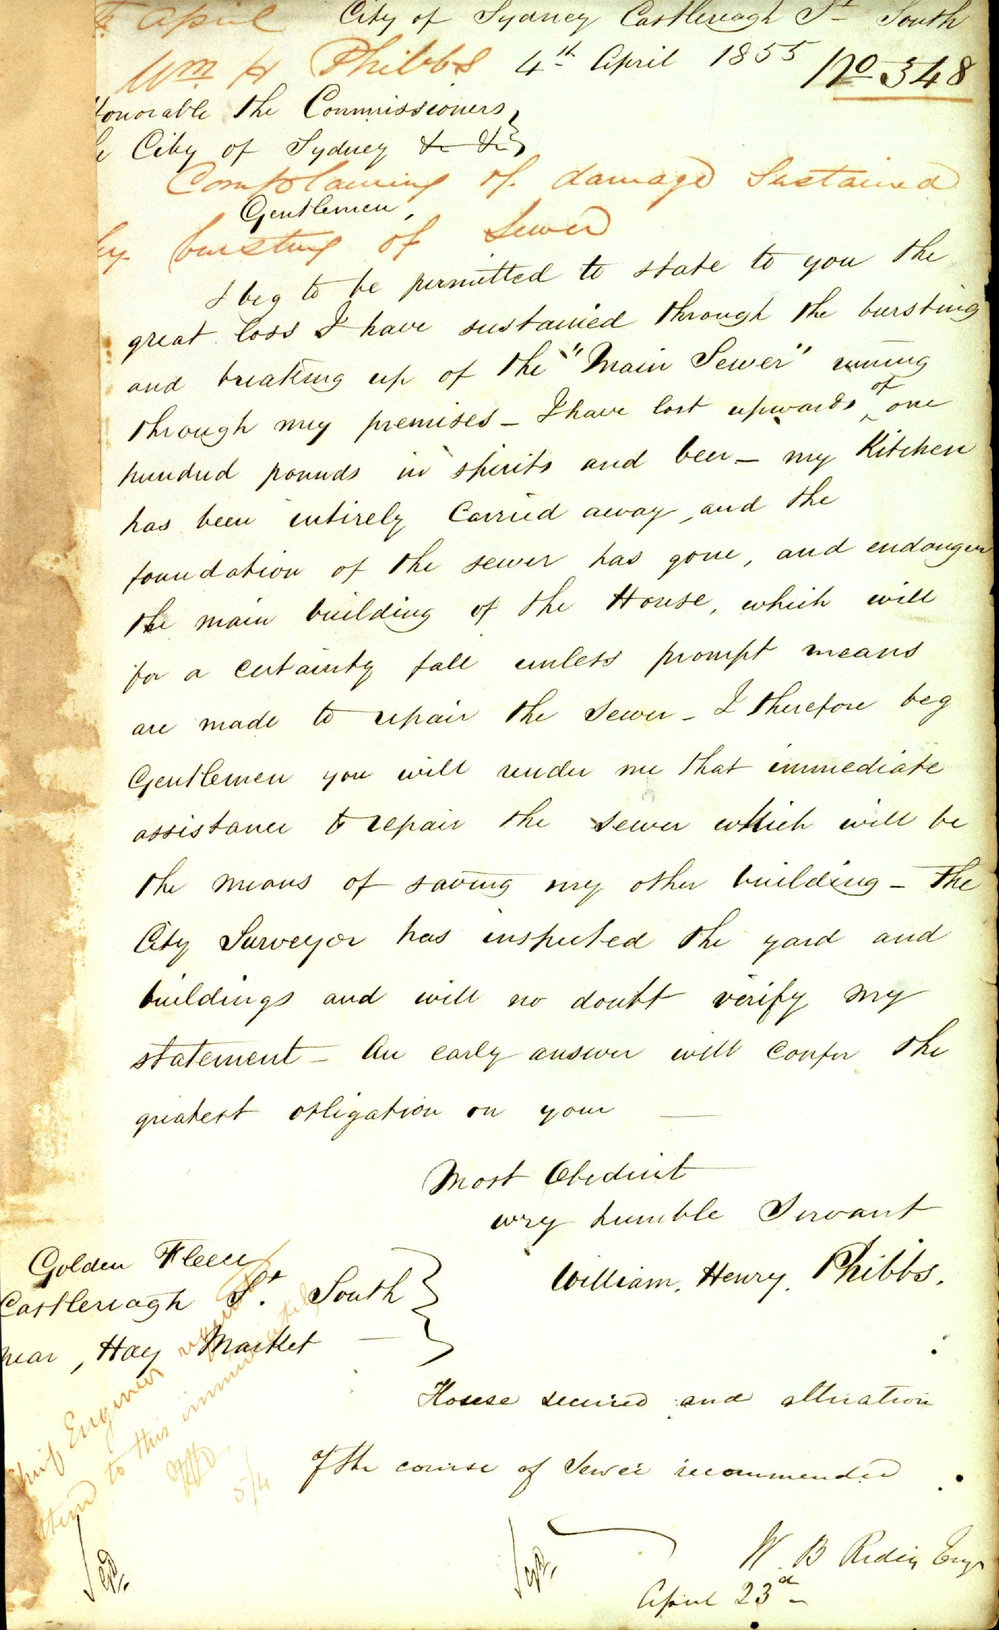 April
City of Sydney Castlereagh St South
Wm H Phibbs 4th April 1855 No 348
Honorable the Commissioners
City of Sydney & &
Complaining of damage Sustained
Gentlemen,
by bursting of Sewer
I beg to be permitted to state to you the
great loss I have sustained through the bursting
and breaking up of the "Main Sewer" running
through my premises – I have lost upwards of one
hundred pounds in spirits and beer – my Kitchen
has been entirely Carried away, and the
foundation of the sewer has gone, and endanger
the main building of the House, which will
for a certainty fall unless prompt means
are made to repair the Sewer – I therefore beg
Gentlemen you will render me that immediate
assistance to repair the sewer which will be
the means of saving my other building – The
City Surveyor has inspected the yard and
buildings and will no doubt verify my
statement – An early answer will confer the
greatest obligation on your —
Most Obedient
very humble Servant
William, Henry, Phibbs.
Golden Fleece
Castlereagh St. South
near, Hay Market —
Chief Engineer
attend to this immediately
5/4
House secured and alteration
Of the course of Sewer recommended
W B Rider Engr
April 23d –